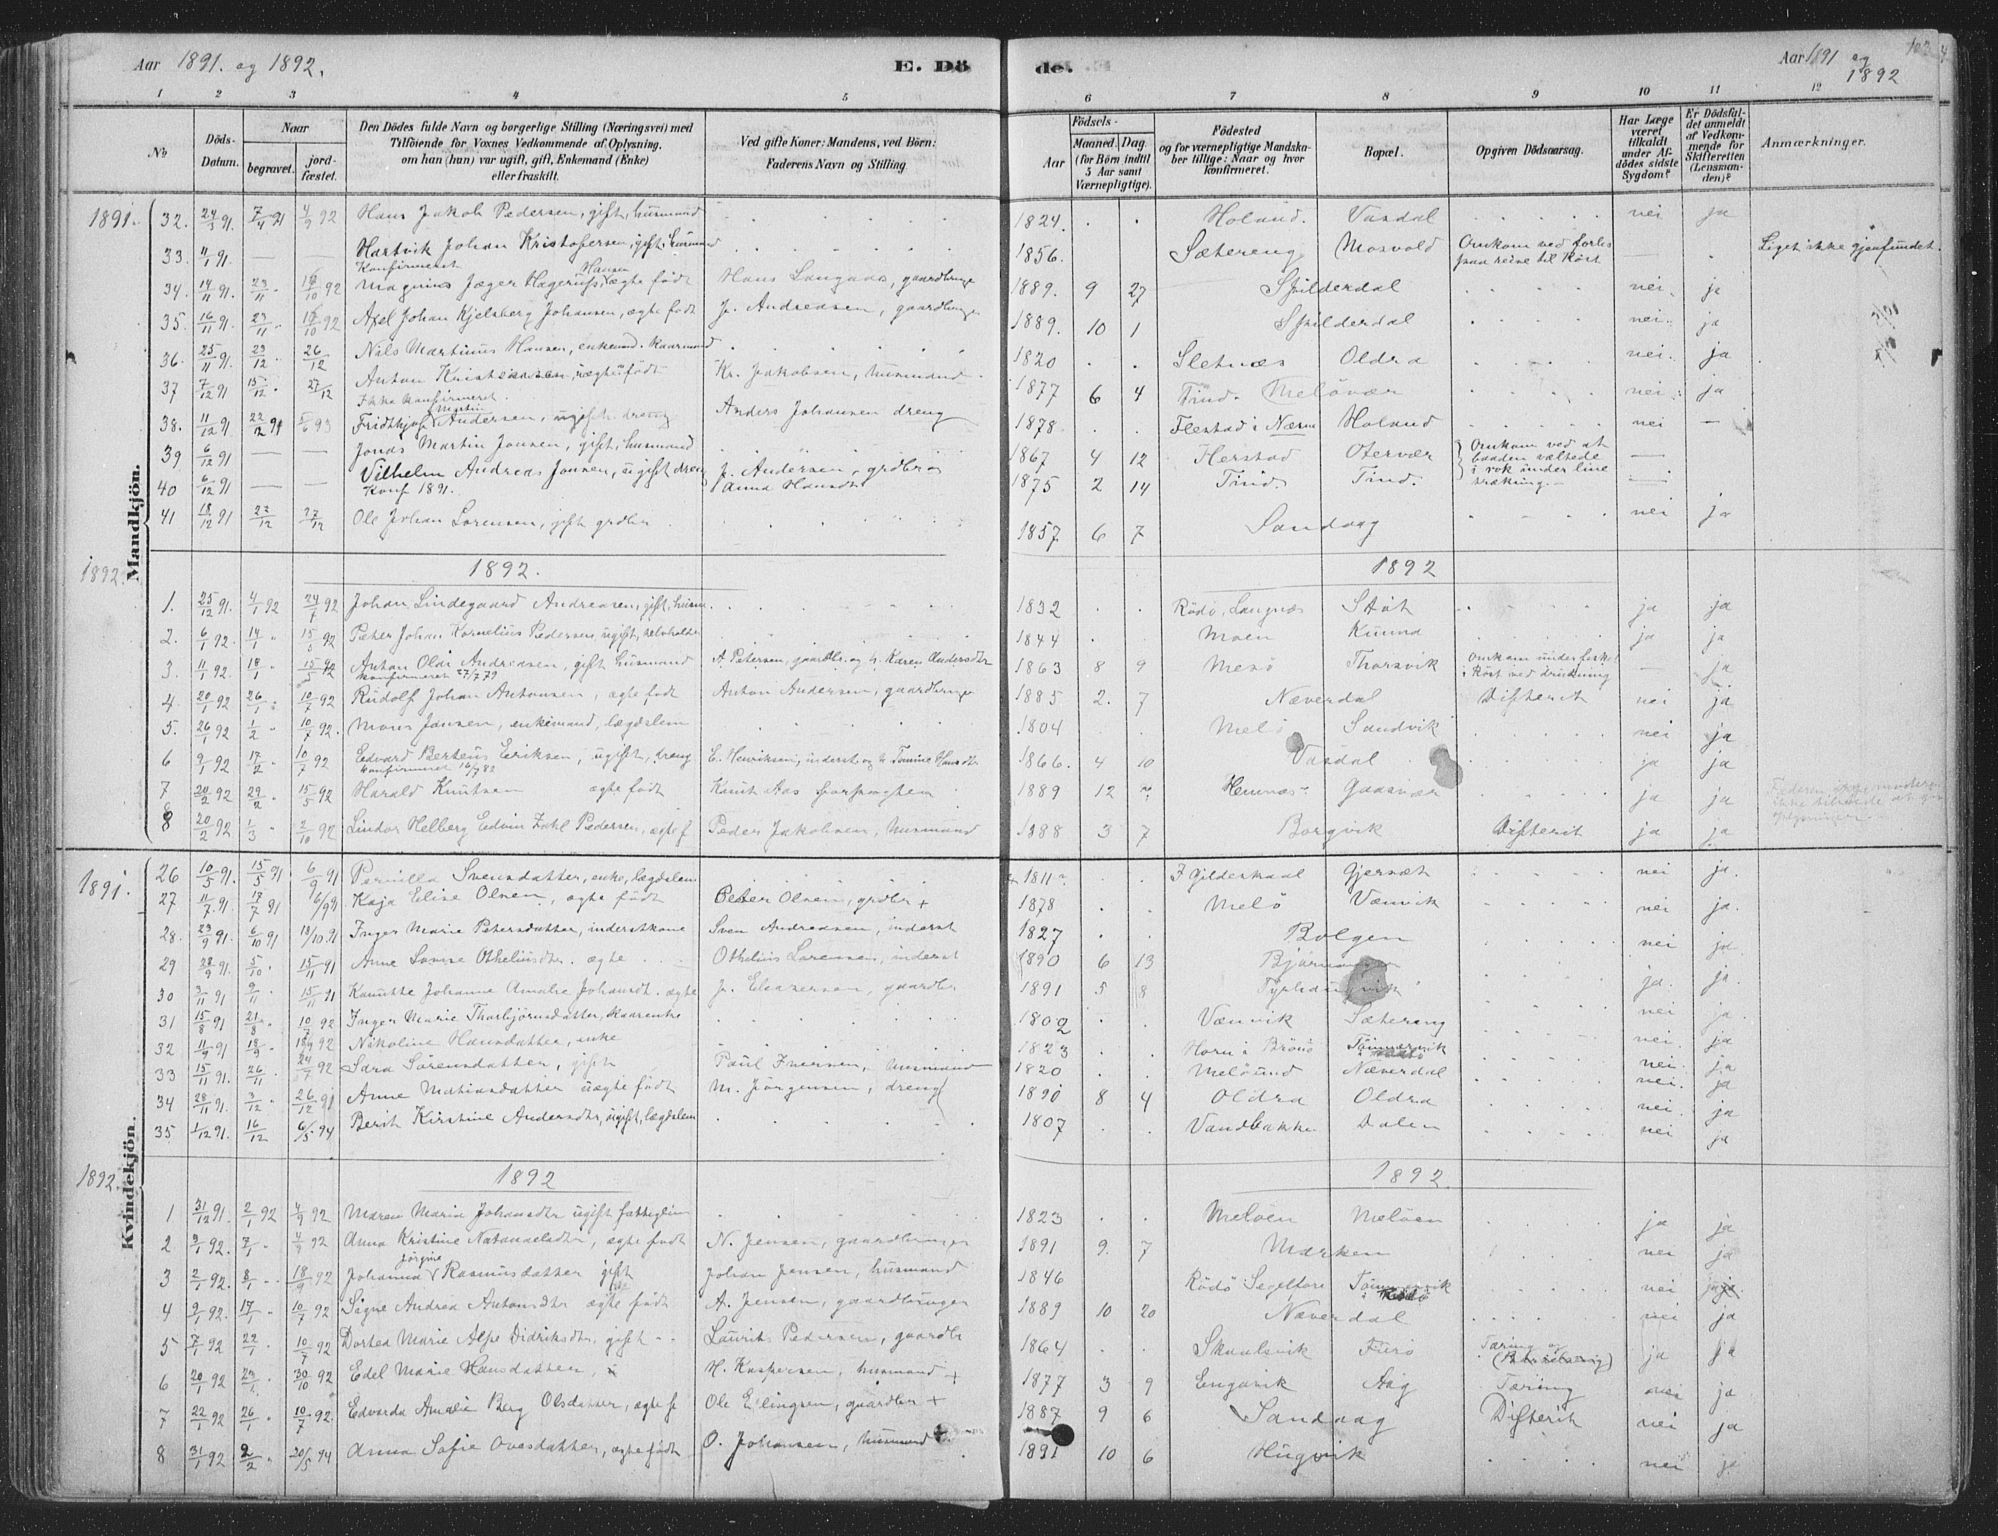 Aar 1891. og 1892.
E. Dö
de.
Aar 1891 og 1892
1 2 3 4 5 6 7 8 9 10 11 12
No
Döds-Datum.
Naar
begravet.
jordfæstet.
Den Dödes fulde Navn og borgerlige Stilling (Næringsvei) med
Tilföiende for Voxnes Vedkommende af Oplysning,
om han (hun) var ugift, gift, Enkemand (Enke)
eller fraskilt.
Ved gifte Koner: Mandens, ved Börn:
Faderens Navn og Stilling
Födsels-
Aar
Maaned. Dag.
(for Börn indtil
5 Aar samt
Værnepligtige).
Födested
og for værnepligtige Mandskaber tillige: Naar og hvor
konfirmeret.
Bopæl.
Opgiven Dödsaarsag.
Har Læge
været
tilkaldt
under Afdödes sidste
Sygdom?
Er Dödsfaldet anmeldt
af Vedkommende for
Skifteretten
(Lensmanden)?
Anmærkninger.
Mandkjön.
1891.
32. 24/3 91. 7/4 91 4/9 92 Hans Jakob Pedersen, gift, husmand 1824. Holand. Vasdal nei ja
33. 11/1 91. — — Hartvik Johan Kristofersen, gift, husmand Konfirmeret 1856. Sætereng Mosvold Omkom ved forlis paa reise til Röst — Liget ikke gjenfundet.
34. 14/11 91. 23/11 " 92 Magnus Jæger Hagerup Hansen ægte født Hans Langaas, gaardbruger 1889. 9 27 Spilderdal nei. ja
35. 16/11 91. 23/11 " 92 Axel Johan Kjelsberg Johansen, ægte født J. Andreasen, gaardbruger 1889. 10 1 Spilderdal nei. ja
36. 25/11 91. 23/12 " 26/12 Nils Martinus Hansen, enkemd. kaarmand 1820 Sletnæs Oldra nei. ja
37 7/12 91 15/12 " 27/12 Anton Kristensen, uægte født Ikke konfirmeret. Kr. Jakobsen, husmand. 1877 6 4 Tind. Meløvær nei. ja
38. 11/12 91 22/2 91 /6 93 Fridthjof Martin Andersen, ugift dreng Anders Johansen dreng 1878. Flestad i Næsne Holand nei —
39 6/12 91 — — Jonas Martin Jonsen, gift, husmand 1867 4 12 Herstad Otervær Omkom ved at baaden væltede i rok under line trækning. —
40 6/12 91 — — Vilhelm Andreas Jonsen, ugift dreng Konf 1891. J. Andersen, grdbr og Anna Hansdt 1875 2 14 Tind. Tind. —
41 18/12 91 22/12 27/12 Ole Johan Sorensen, gift grdbr 1857 6 7 Sandaag nei ja
1892. 1892
1892.
1. 25/12 91. 4/1 92 24/7 92 Johan Lindegaard Andreasen, gift, husm. 1832 Rödö, Langnæs Støt ja ja
2. 6/1 92. 14/1 " 15/5 92 Peter Johan Kornelius Pedersen, ugift, selvholder 1844 Moen Kunna ja ja
3. 11/1 92 18/1 15/5 92 Anton Olai Andreasen, gift husmand konfirmeret 27/7 79 A. Petersen, gaardbr. og h. Karen Andersdtr 1863 8 9 Mesö Thorsvik Omkom under fiske i Röst ved drukning — ja
4. 20/1 92 26/1 " 10/7 92 Rudolf Johan Antonsen, ægte født Anton Andersen, gaardbruger 1885 2. 7 Næverdal Difterit nei ja
5. 26/1 92 1/2 " 10/7 92. Mons Jansen, enkemand, lægdslem 1804 Melö Sandvik nei ja
6 9/1 92 17/2 " 10/7 92 Edvard Berteus Eriksen, ugift, dreng konfirmeret 16/7 82 E. Henriksen, inderst og h. Tomine Hansdtr 1866. 4 10 Vasdal ja ja
7 20/2 92 29/2 " 15/5 92 Harald Knutsen ægte født Knut Aas 1889 12 Hemnæs Gaasvær ja ja
8 20/2 92 1/3 " 2/10 92 Lindor Helberg Edvin Zahl Pedersen, ægte f Peder Jakobsen, husmand 1888 3 7 Borgvik Difterit ja ja.
Kvindekjön.
1891.
26 10/5 91. 15/5 91 6/9 91 Pernilla Svensdatter, enke, lægdslem 1811 I Gildeskaal Gjersæt nei ja.
27 11/7 91. 17/7 91 6/9 91 Kaja Elise Olsen, ægte født Peter Olsen, grdbr + 1878 Melö Vænvik nei ja.
28. 23/9 91. 6/10 91 18/10. 91 Inger Marie Petersdatter, inderstkone Sven Andreasen, inderst 1827 Bolgen nei ja.
29 28/9 91. 5/10 " 15/11 91 Anne Lovise Otheliusdtr. ægte Othelius Lorensen, inderst 1890 6 13 ja ja.
30 3/11 91 9/11 " 15/11 91 Kanutte Johanne Amalie Johansdt. ægte J. Eleazersen, gaardbr 1891 5 8 ja. ja.
31 15/8 91 21/8 " 10/7 92 Inger Marie Thorbjørnsdatter, kaarenke 1802 Vænvik Sætereng nei ja.
32 11/9 91 18/9 " 18/9 92 Nikoline Hansdatter, enke 1823 Horn i Brönö Tömmervik i Rödö nei. ja.
33 15/11 91 26/11 " 24/7 92 Sara Sørensdatter, gift Paul Iversen, husmand 1820 Melösund Næverdal nei. ja
34 28/11 91. 3/12 " 26/12 91 Anne Matiasdatter uægte født M. Jörgensen, dreng 1890 8 4 Oldra Oldra nei. ja
35. 1/12 91. 16/12 6/5 94 Berit Kirstine Andersdtr, ugift, lægdslem 1807 Vandbakke Dalen nei ja
1892 1892.
1892.
1 31/12 91. 2/1 92 4/9 92 Maren Maria Johansdtr ugift fattiglem 1823 Meløen Meløen ja ja
2 2/1 92. 7/1 " 4/9 92 Anna Kristine Natanaelsdtr, ægte født N. Jensen, gaardbruger 1891 9. 7 Marken nei ja
3 2/1 92. 8/1 " 18/9 92 Johanna Jörgine Rasmusdatter gift Johan Jensen, husmand 1846 Rödö Segelfore Tömmervik i Rödö nei ja
4 9/1 92. 17/1 10/7 92 Signe Andrea Antonsdtr ægte født A. Jensen, gaardbruger 1889 10 20 Næverdal nei ja
5 7/1 92 22/1 10/7 92 Dortea Marie Alpe Didriksdtr, gift Laurits Pedersen, gaardbr 1864 Skaalsvik Furö Tæring og ja ja
6 20/1 92 23/1 " 30/10 92 Edel Marie Hansdatter, H. Kaspersen, husmand + 1877 3 9 Engavik Aag Tæring nei ja
7 22/1 92 26/1 " 10/7 92. Edvarda Amalie Berg Olsdatter, ægte f Ole Ellingsen, gaardbr + 1887 9 6 Sandaag Difterit nei ja
8 31/1 92 2/2 " 20/5 94 Anna Sofie Ovesdatter, ægte født O. Johansen, husmand 1891 10 6 Hugvik nei ja